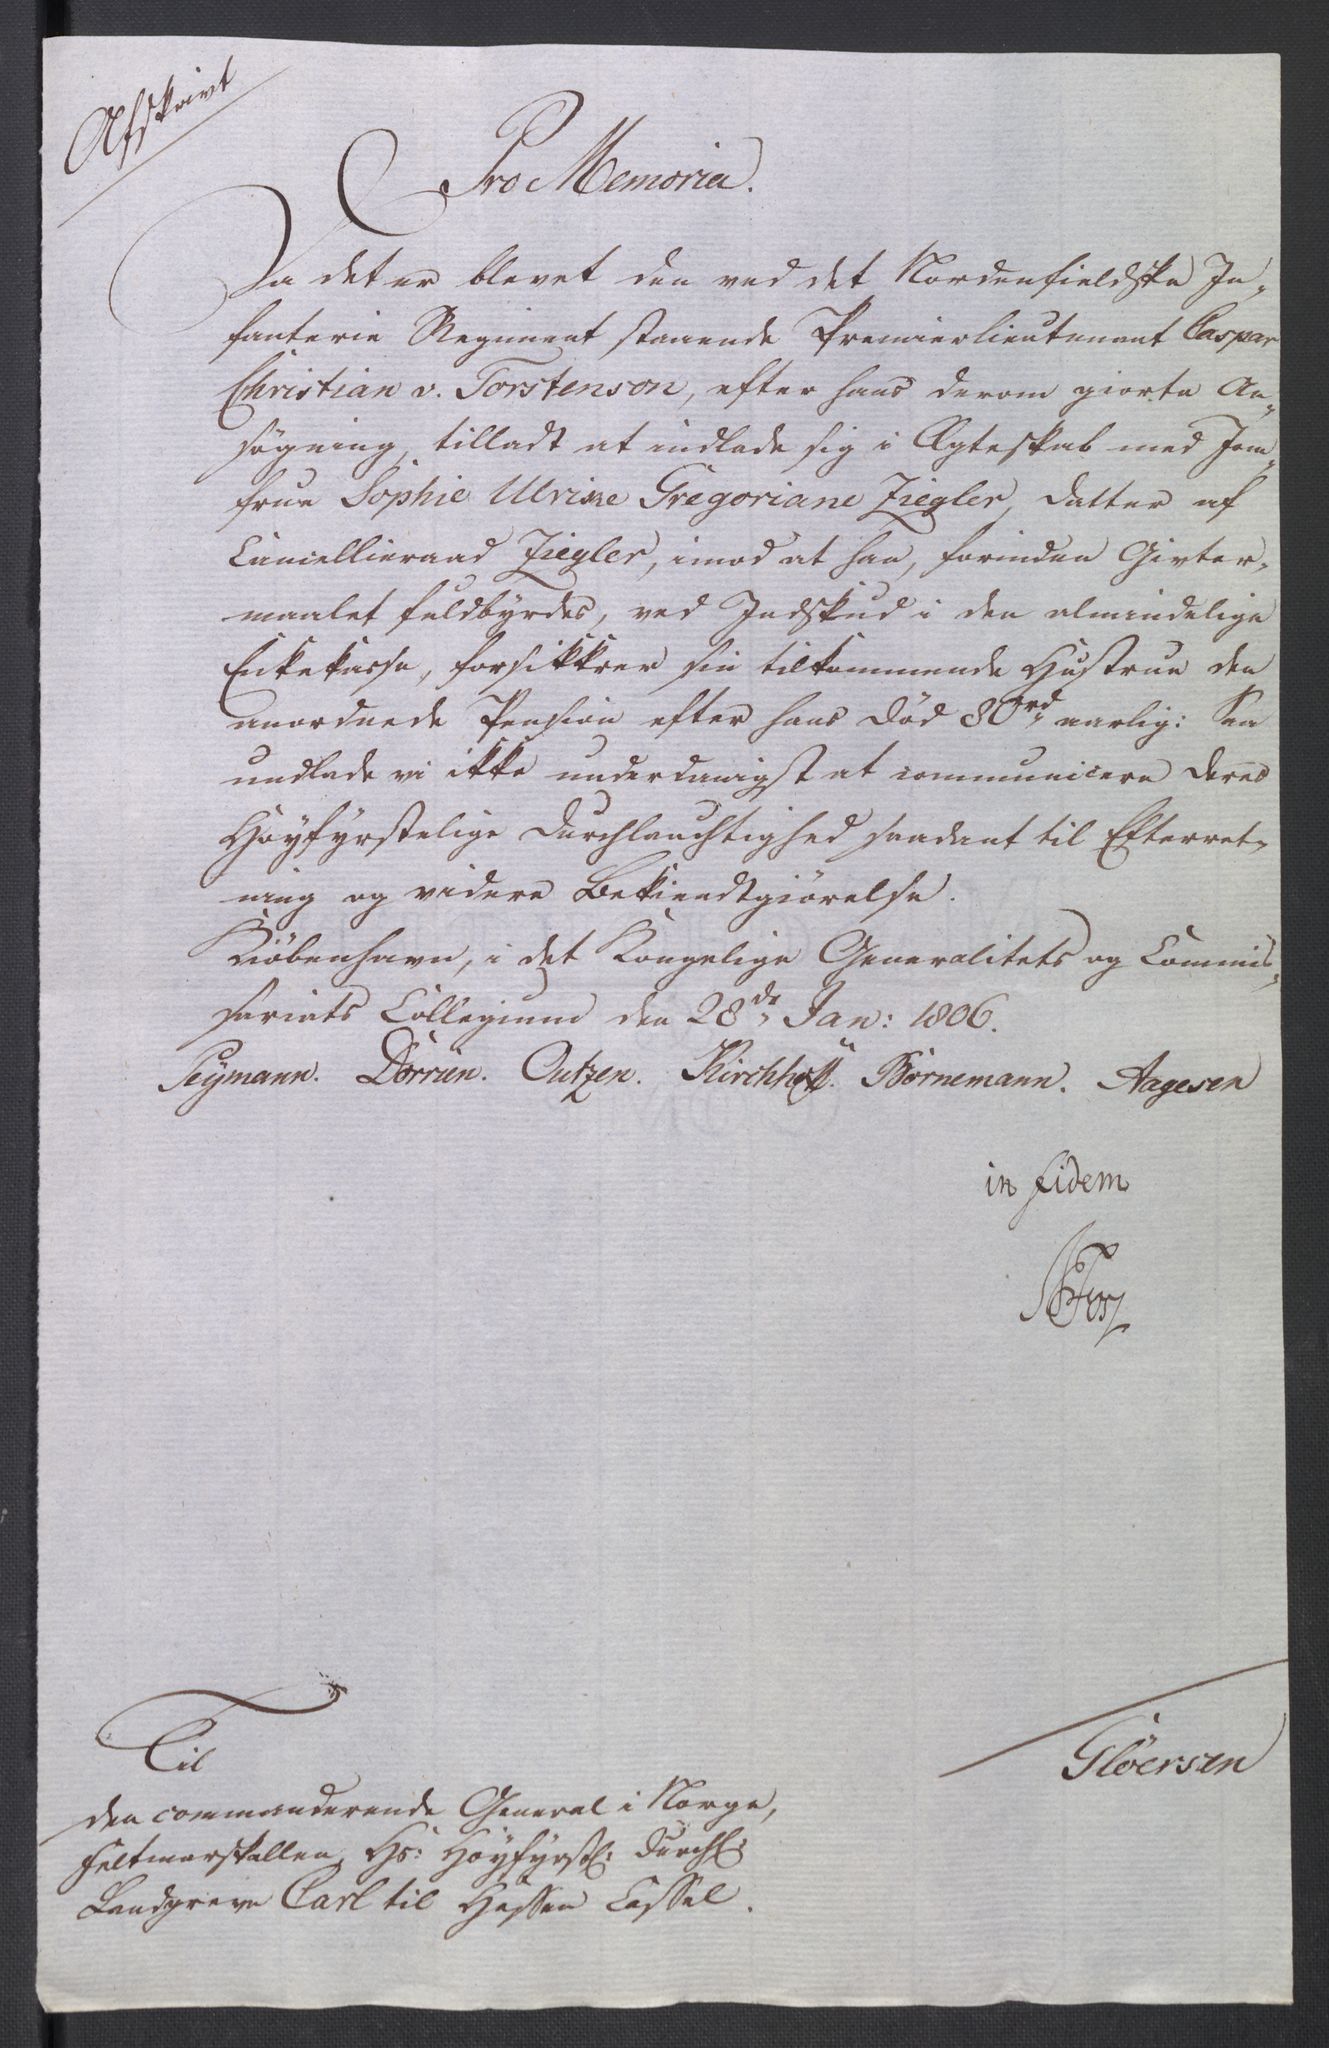 Afskrivt
Pro Memoria.
Da det er blevet den ved det Nordenfieldske In-
fanterie Regiment staaende Premierlieutenant Caspar
Christian v. Torstenson, efter hans derom giorte An-
søgning, tilladt at indlade sig i Ægteskab med Jom-
frue Sophie Ulrike Gregoriane Ziegler, Datter af
Cancellieraad Ziegler, imod at han, forinden Givter-
maalet fuldbyrdes, ved Indskud i den almindelige
Enkekasse, forsikkrer sin tilkommende Hustrue den
anordnede Pension efter hans Død 80 rd. aarlig: Saa
undlade vi ikke underdanigst at communicere Deres
Høyfyrstelige Durchlauchtighed saadant til Efterret-
ning og videre Bekiendtgiørelse.
Kiøbenhavn, i det Kongelige Generalitets og Commis-
sariats Collegium den 28de Jan: 1806.
Peymann. Dörrien. Outzen. Kirchhoff. Bornemann. Aagesen
in fidem
Gløersen
Til
den commanderende General i Norge,
Feltmarskallen, Hs: Høyfyrstl: Durchl:
Landgreve Carl til Hessen Cassel.